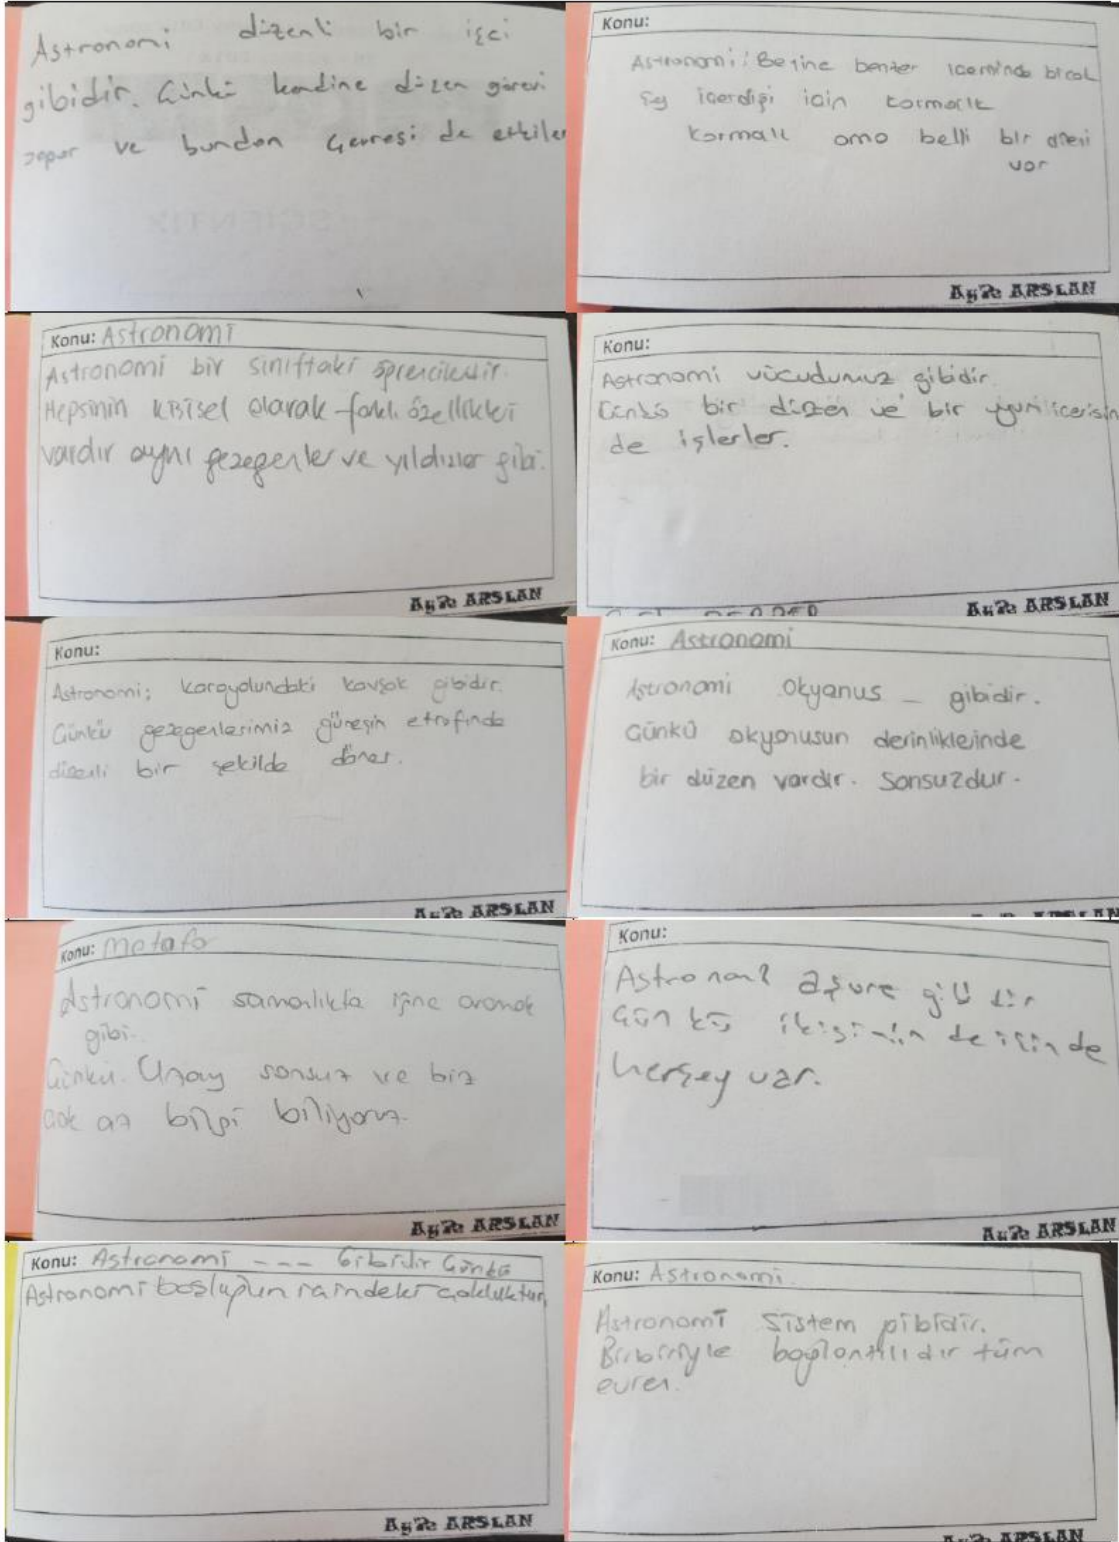 Astronomi düzenli bir işçi
gibidir. Çünkü kendine düzen görevi
yapar ve bundan çevresi de etkiler
Konu:
Astronomi: Beyine benzer içerninde bircok
şey icerdiği için karmaşık
karmaşık ama belli bir düzeni
var
Ayşe ARSLAN
Konu: Astronomi
Astronomi bir sınıftaki öğrencilerdir.
Hepsinin kişisel olarak farklı özellikleri
vardır aynı gezegenler ve yıldızlar gibi.
Ayşe ARSLAN
Konu:
Astronomi vücudumuz gibidir.
Çünkü bir düzen ve bir içerisin
de işlerler.
Ayşe ARSLAN
Konu:
Astronomi; karayolundaki kavşak gibidir.
Çünkü gezegenlerimiz güneşin etrafında
düzenli bir şekilde döner.
Ayşe ARSLAN
Konu: Astronomi
Astronomi okyanus - gibidir.
Çünkü okyonusun derinliklerinde
bir düzen vardır. Sonsuzdur.
Konu: Metafo
Astronomi samanlıkta iğne aramak
gibi.
Çünkü. Uzay sonsuz ve biz
çok az bilgi biliyoruz.
Ayşe ARSLAN
Konu:
Astronomi aşure gibidir
Çünkü ikisinin de içinde
herşey var.
Ayşe ARSLAN
Konu: Astronomi --- Gibidir Çünkü
Astronomi boşluğun içindeki çokluktur,
Ayşe ARSLAN
Konu: Astronomi.
Astronomi sistem gibidir.
Birbiriyle bağlantılıdır tüm
evren.
Ayşe ARSLAN